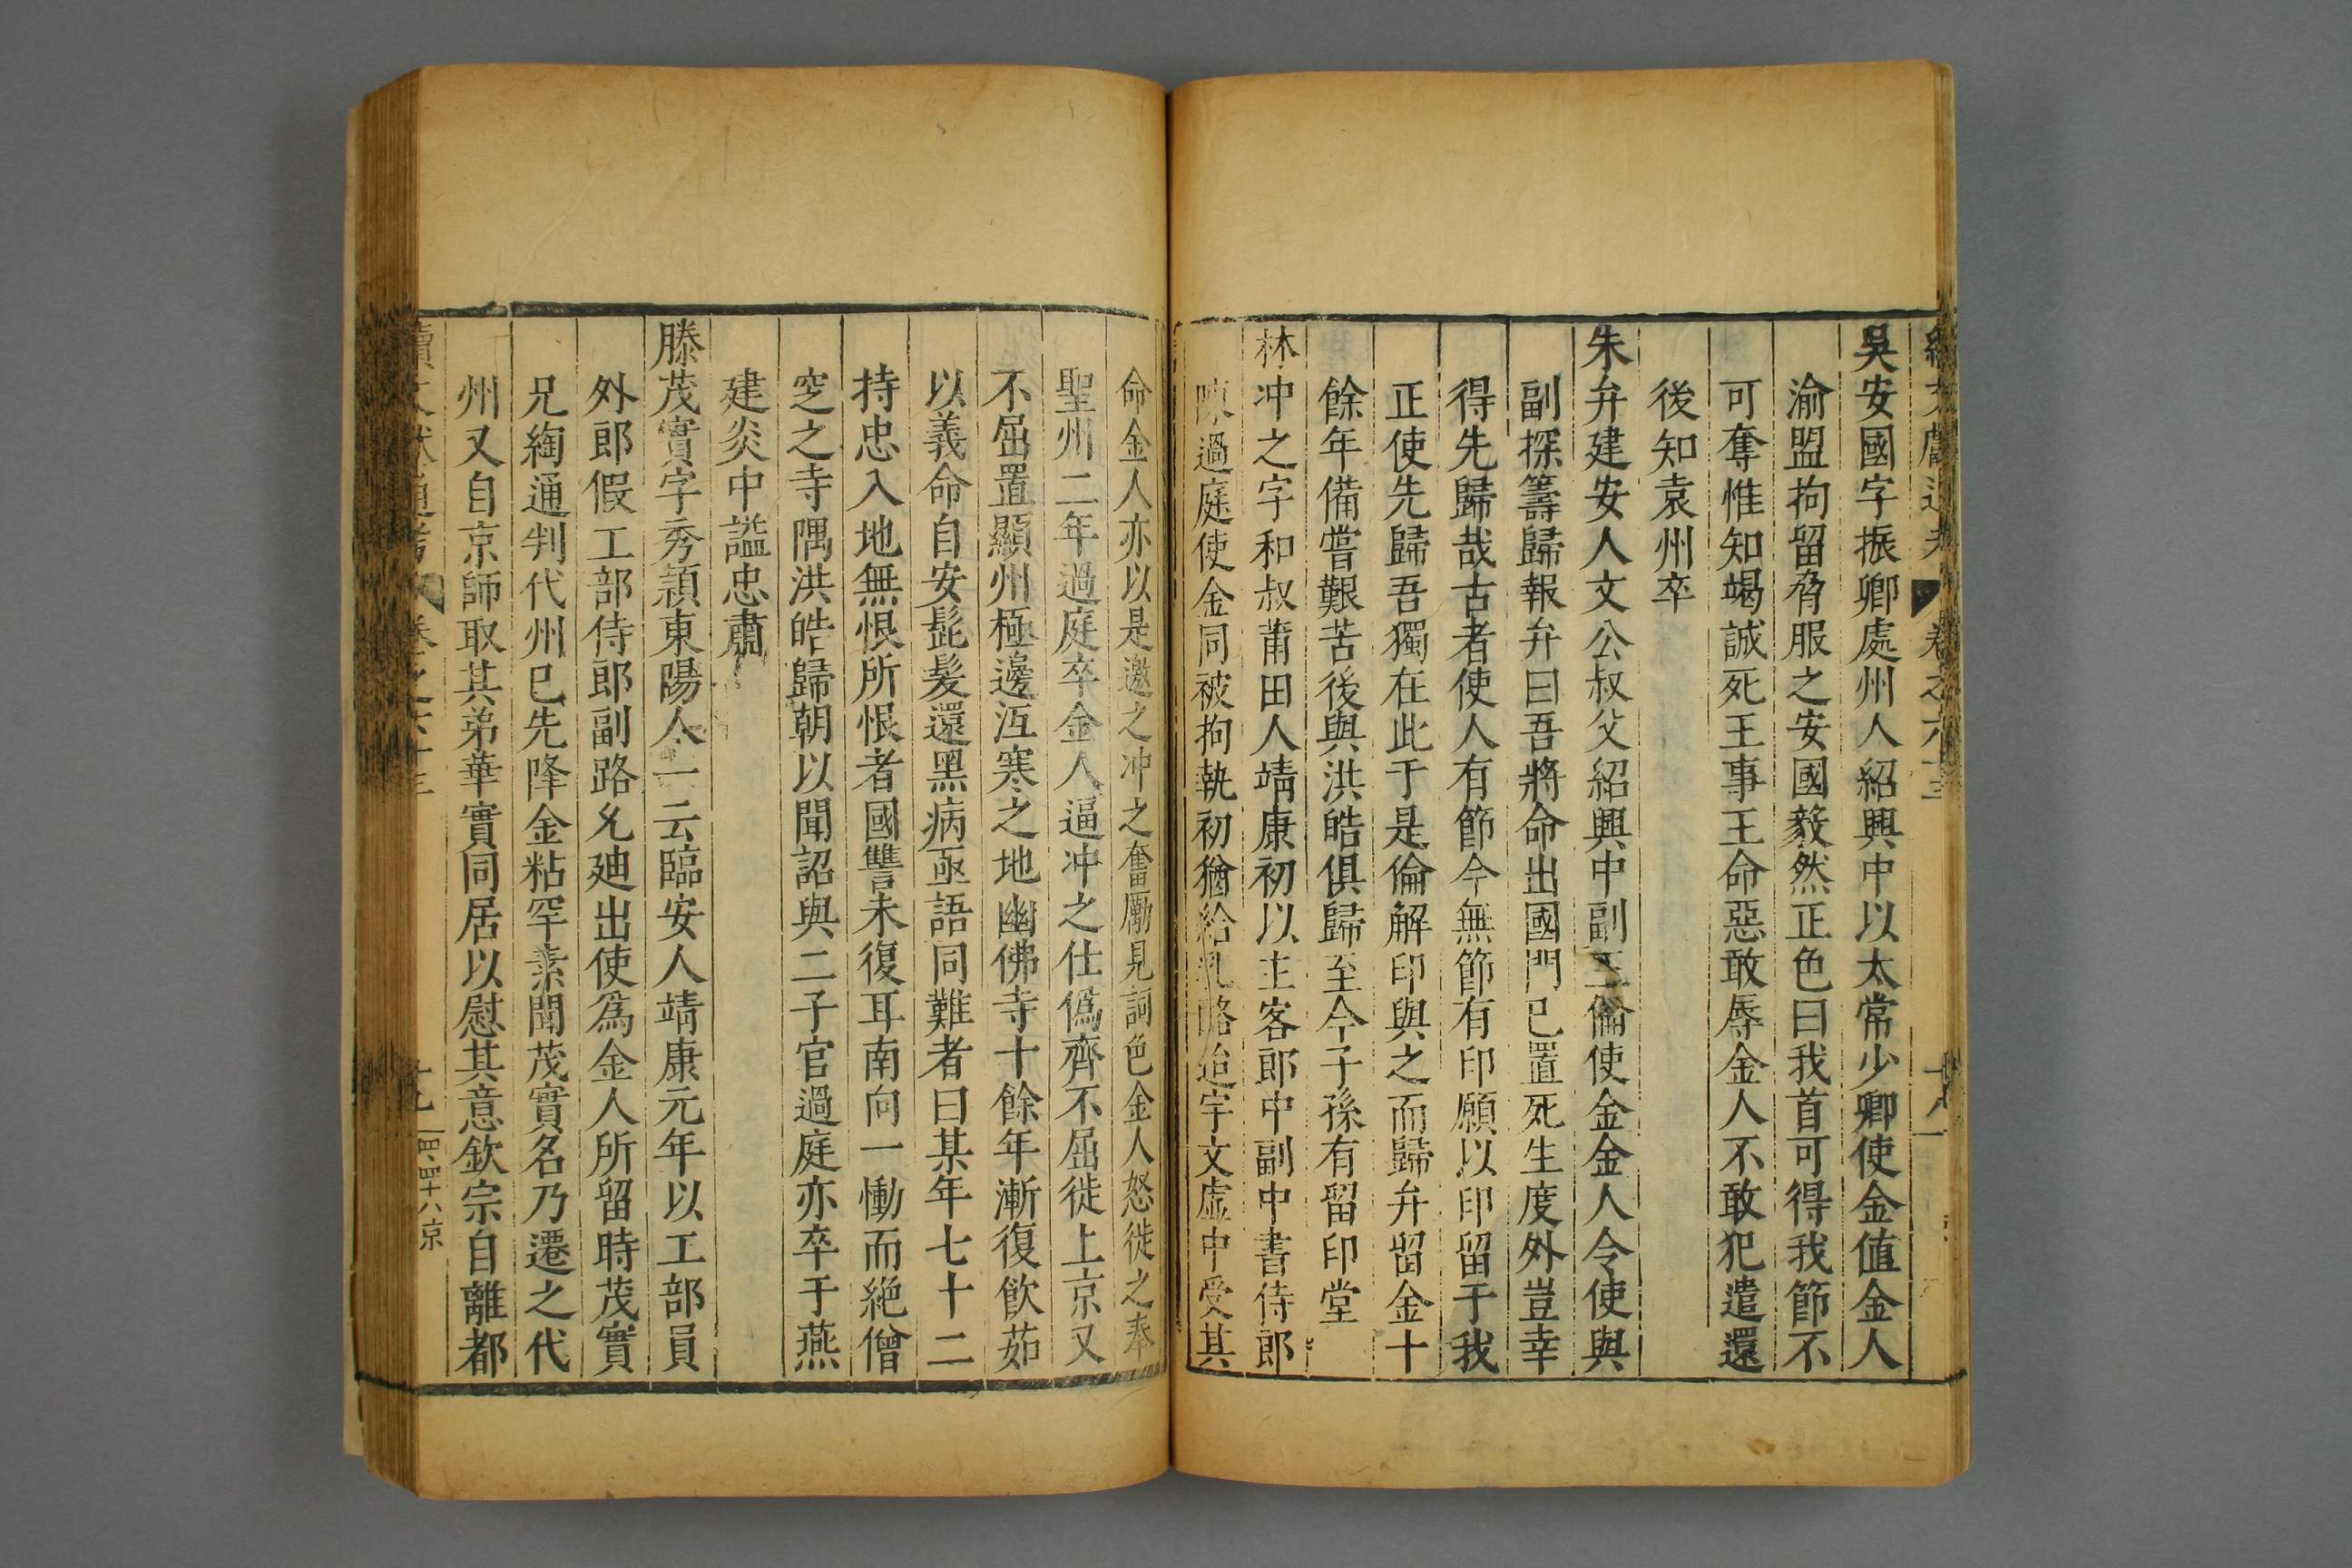 續文獻通考 卷之六十三 十八
吳安國字振卿處州人紹興中以太常少卿使金值金人
渝盟拘留脅服之安國毅然正色曰我首可得我節不
可奪惟知竭誠死王事王命惡敢辱金人不敢犯遣還
後知袁州卒
朱弁建安人文公叔父紹興中副王倫使金金人令使與
副探籌歸報弁曰吾將命出國門已置死生度外豈幸
得先歸哉古者使人有節今無節有印願以印留于我
正使先歸吾獨在此于是倫解印與之而歸弁留金十
餘年備嘗艱苦後與洪皓俱歸至今子孫有留印堂
林冲之字和叔莆田人靖康初以主客郎中副中書侍郎
陳過庭使金同被拘執初猶給乳酪迨宇文虛中受其
命金人亦以是邀之冲之奮勵見詞色金人怒徙之奉
聖州二年過庭卒金人逼冲之仕僞齊不屈徙上京又
不屈置顯州極邊沍寒之地幽佛寺十餘年漸復飲茹
以義命自安髭髮還黑病亟語同難者曰某年七十二
持忠入地無恨所恨者國讐未復耳南向一慟而絕僧
窆之寺隅洪皓歸朝以聞詔與二子官過庭亦卒于燕
建炎中謚忠肅
滕茂實字秀穎東陽人一云臨安人靖康元年以工部員
外郎假工部侍郎副路允廸出使爲金人所留時茂實
兄綯通判代州已先降金粘罕素聞茂實名乃遷之代
州又自京師取其弟華實同居以慰其意欽宗自離都
續文獻通考 卷之六十三 十九 四四十六京